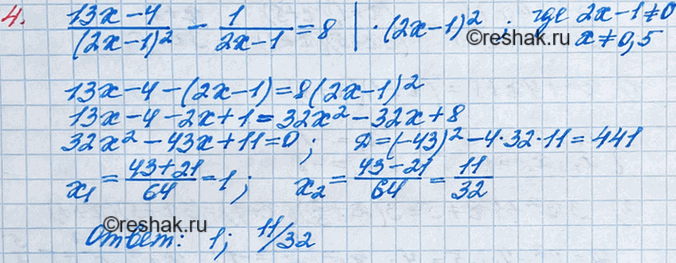 4. (13x-4)/(2x-1)² - 1/(2x-1) = 8 | · (2x-1)² ; где 2x-1≠0
x≠0,5
13x-4-(2x-1)=8(2x-1)²
13x-4-2x+1=32x²-32x+8
32x²-43x+11=0; Д=(-43)²-4·32·11=441
x₁=(43+21)/64=1; x₂=(43-21)/64=11/32
©reshak.ru
Ответ: 1; 11/32
©reshak.ru